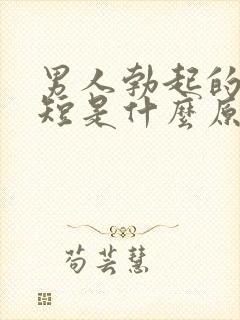 男人勃起的
短是什麼原
苟芸慧